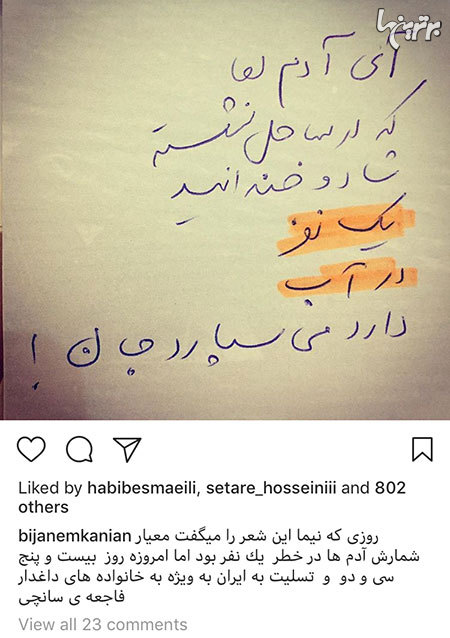 برترینها
آی آدم ها
که در ساحل نشسته
شاد و خندانید
یک نفر
در آب
دارد می سپارد جان !
Liked by habibesmaeili, setare_hosseiniii and 802
others
bijanemkanian روزی که نیما این شعر را میگفت معیار
شمارش آدم ها در خطر یك نفر بود اما امروزه روز بیست و پنج
سی و دو و تسلیت به ایران به ویژه به خانواده های داغدار
فاجعه ی سانچی
View all 23 comments